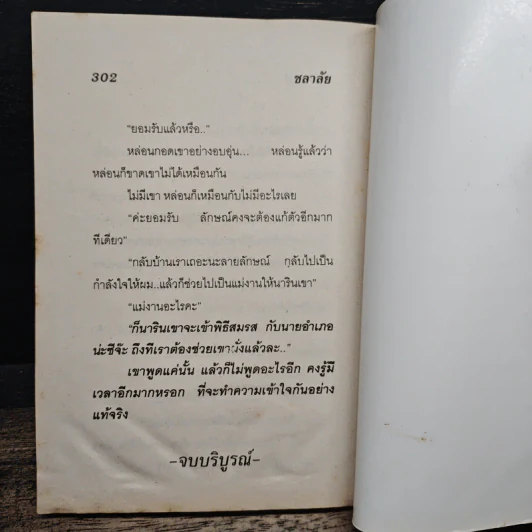 302 ชลาลัย
“ยอมรับแล้วหรือ..”
หล่อนกอดเขาอย่างอบอุ่น... หล่อนรู้แล้วว่า
หล่อนก็ขาดเขาไม่ได้เหมือนกัน
ไม่มีเขา หล่อนก็เหมือนกับไม่มีอะไรเลย
“ค่ะยอมรับ ลักษณ์คงจะต้องแก้ตัวอีกมาก
ทีเดียว”
“กลับบ้านเราเถอะนะลายลักษณ์ กลับไปเป็น
กำลังใจให้ผม..แล้วก็ช่วยไปเป็นแม่งานให้นารินเขา”
“แม่งานอะไรคะ”
“ก็นารินเขาจะเข้าพิธีสมรส กับนายอำเภอ
น่ะซีจ๊ะ ถึงทีเราต้องช่วยเขามั่งแล้วละ..”
เขาพูดแค่นั้น แล้วก็ไม่พูดอะไรอีก คงรู้มี
เวลาอีกมากหรอก ที่จะทำความเข้าใจกันอย่าง
แท้จริง
-จบบริบูรณ์-